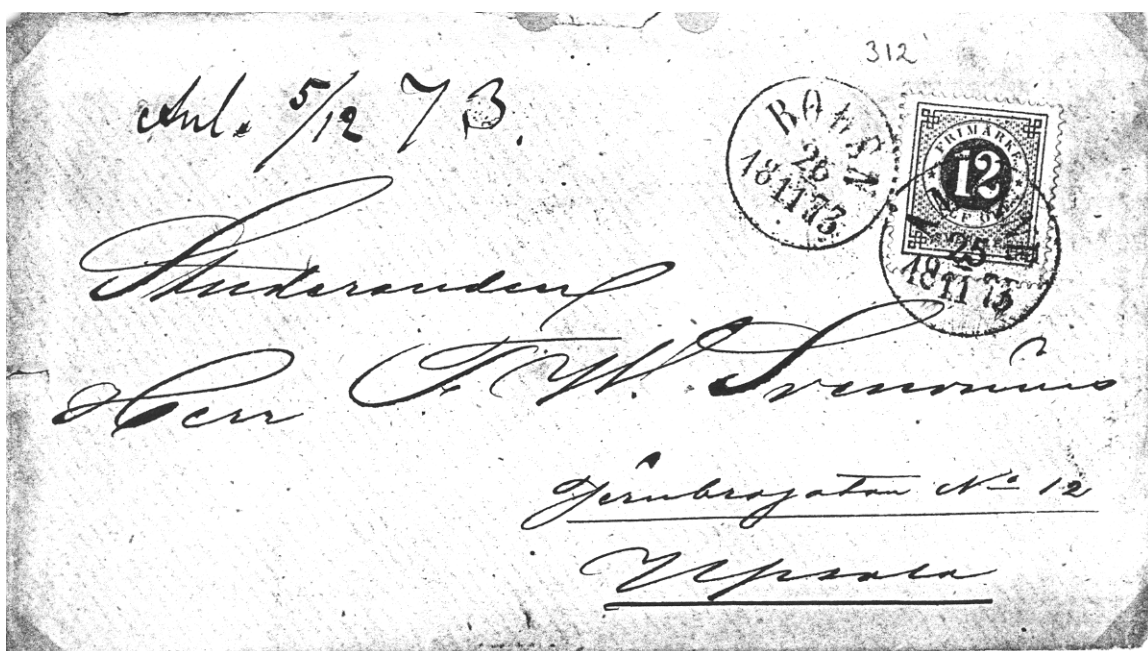 312
Anl. 5/12 73.
BODEN
26
1811 73
FRIMÄRKE
12
25
1811 73
Studeranden
Herr F. W. Svenonius
Jernbrogatan No 12
Upsala